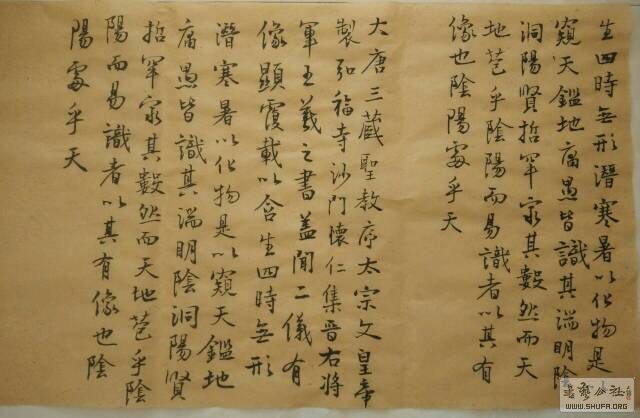 生四時無形潛寒暑以化物是
窺天鑑地庸愚皆識其端明陰
洞陽賢哲罕窮其數然而天
地苞乎陰陽而易識者以其有
像也陰陽處乎天
大唐三藏聖教序太宗文皇帝
製弘福寺沙門懷仁集晉右將
軍王羲之書蓋聞二儀有
像顯覆載以含生四時無形
潛寒暑以化物是以窺天鑑地
庸愚皆識其端明陰洞陽賢
哲罕窮其數然而天地苞乎陰
陽而易識者以其有像也陰
陽處乎天
WWW.SHUFA.ORG